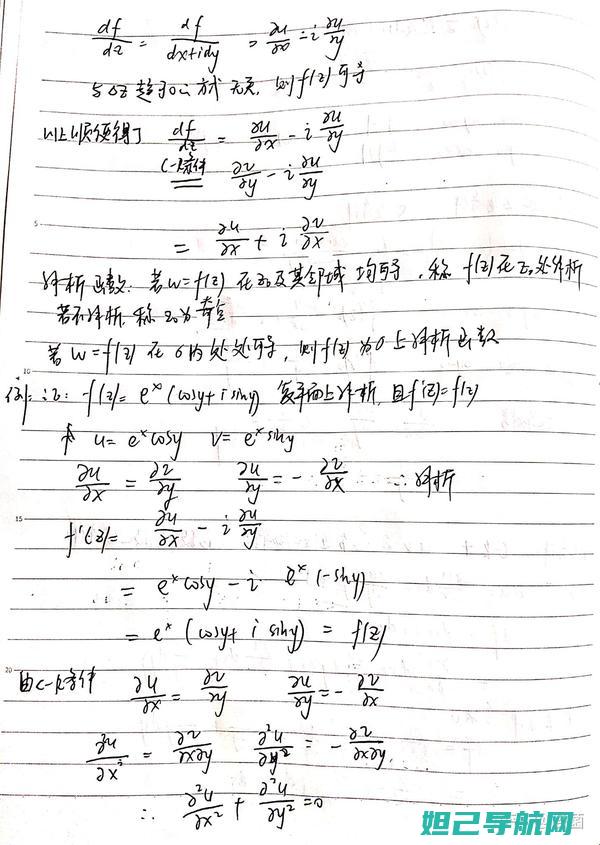 df/dz = df/(dx+idy) = ∂u/∂x - i ∂u/∂y
与Δz趋于0的方式无关, 则f(z)可导
以上顺便得了 df/dz = ∂u/∂x - i ∂u/∂y
C-R条件 ∂v/∂y - i ∂u/∂y
5
= ∂u/∂x + i ∂v/∂x
解析函数: 若w=f(z) 在z₀及其邻域 均可导, 称 f(z)在z₀处解析
若不解析, 称z₀为奇点
若 w=f(z) 在 σ内处处可导, 则f(z)为σ上解析函数
10
例: 证: f(z)= eˣ(cosy+isiny) 复平面上解析, 且f'(z)=f(z)
u= eˣcosy v= eˣsiny
∂u/∂x = ∂v/∂y ∂u/∂y = - ∂v/∂x ∴解析
15
f'(z)= ∂u/∂x - i ∂u/∂y
= eˣcosy - i eˣ(-siny)
= eˣ(cosy+ i siny) = f(z)
20
由C-R条件 ∂u/∂x = ∂v/∂y ∂u/∂y = - ∂v/∂x
∂²u/∂x² = ∂²v/∂x∂y ∂²u/∂y² = - ∂²v/∂x∂y.
∴ ∂²u/∂x² + ∂²u/∂y² =0
妲己导航网